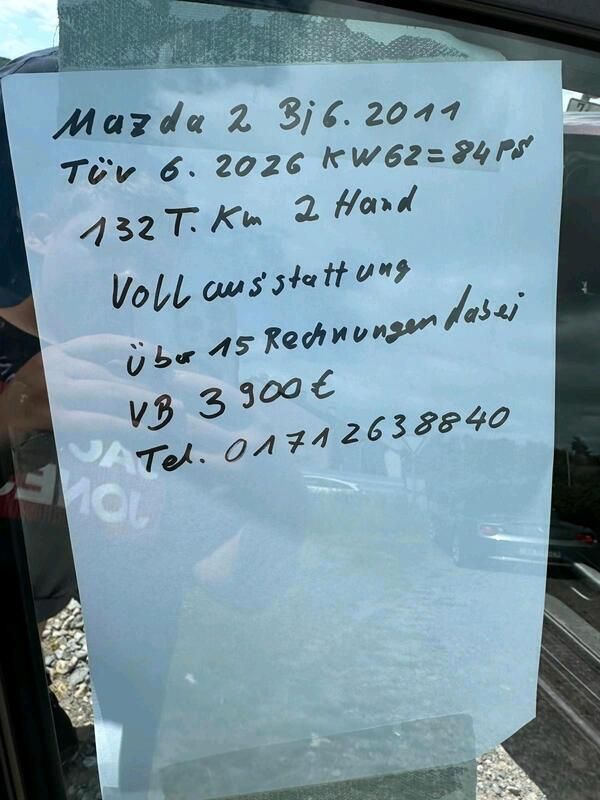 Mazda 2 Bj 6. 2011
TÜV 6. 2026 KW62=84PS
132T. Km 2 Hand
Vollausstattung
über 15 Rechnungen dabei
VB 3900€
Tel. 01712638840
JAC
JONE